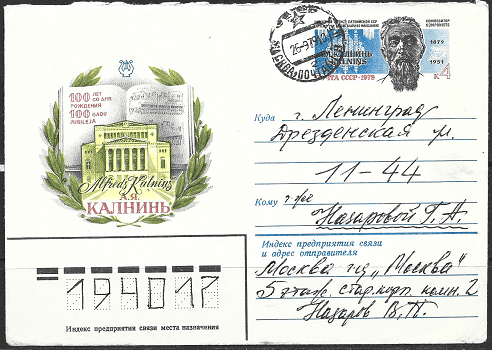 100 ЛЕТ
СО ДНЯ
РОЖДЕНИЯ
100 GADU
JUBILEJA
Alfreds Kalniņš
А.Я.
КАЛНИНЬ
КОМПОЗИТОР
KOMPONISTS
1879
1951
А. КАЛНИНЬ
KALNIŅŠ
ПОЧТА СССР · 1979
К 4
26-9 79
МОСКВА
Куда г. Ленинград
Дрезденская ул.
11-44
Кому г-ре
Назаровой Г. А.
Индекс предприятия связи
и адрес отправителя
Москва г-ца „Москва"
5 этаж. стар. корп. комн. 2
Назаров В. П.
194017
Индекс предприятия связи места назначения